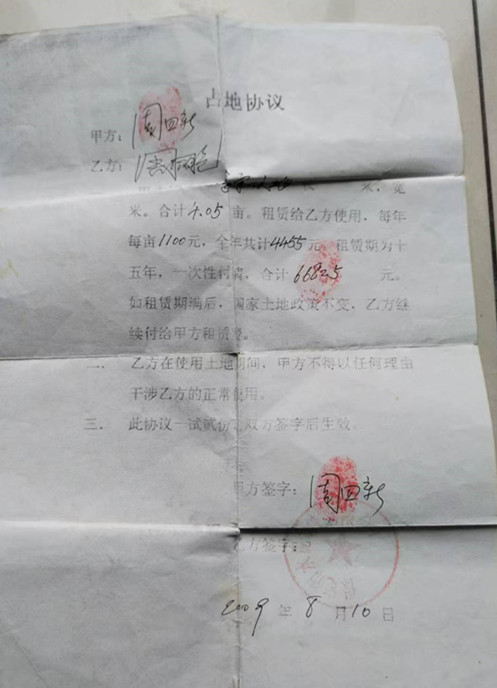 占地协议
甲方：周四新
乙方：
米，宽
米。合计4.05亩。租赁给乙方使用，每年
每亩1100元，全年共计4455元。租赁期为十
五年，一次性付清，合计66825元。
如租赁期满后，国家土地政策不变，乙方继
续付给甲方租赁费。
二、乙方在使用土地期间，甲方不得以任何理由
干涉乙方的正常使用。
三、此协议一试贰份，双方签字后生效。
甲方签字：周四新
乙方签字：
2009年8月10日